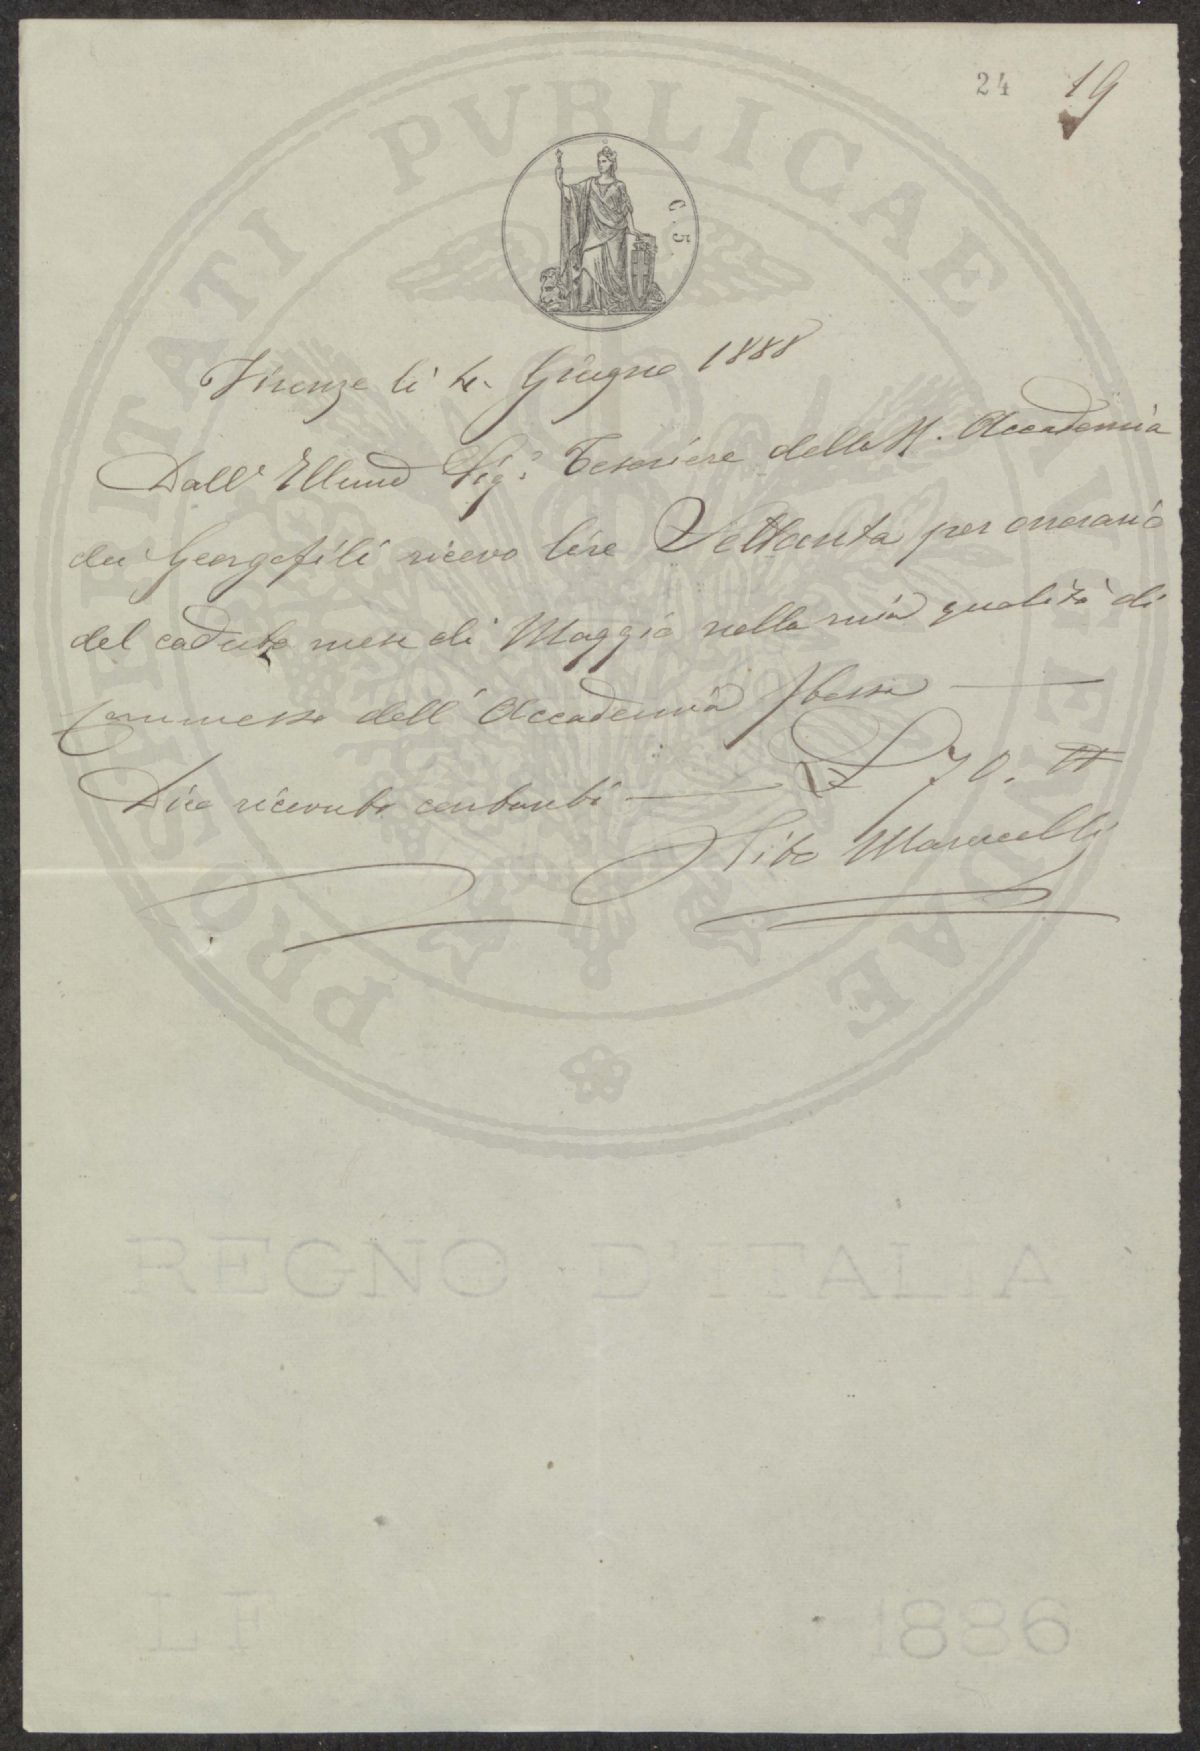 24 19
PROSPERITATI PVBLICAE AVGENDAE
C. 5
Firenze li 4. Giugno 1888
Dall' Illmo Sigr. Tesoriere della R. Accademia
dei Georgofili ricevo lire Settanta per onorario
del caduto mese di Maggio nella mia qualità di
Commesso dell' Accademia stessa
Dico ricevuto contanti L 70. "
Tito Marucelli
REGNO D'ITALIA
LF 1886